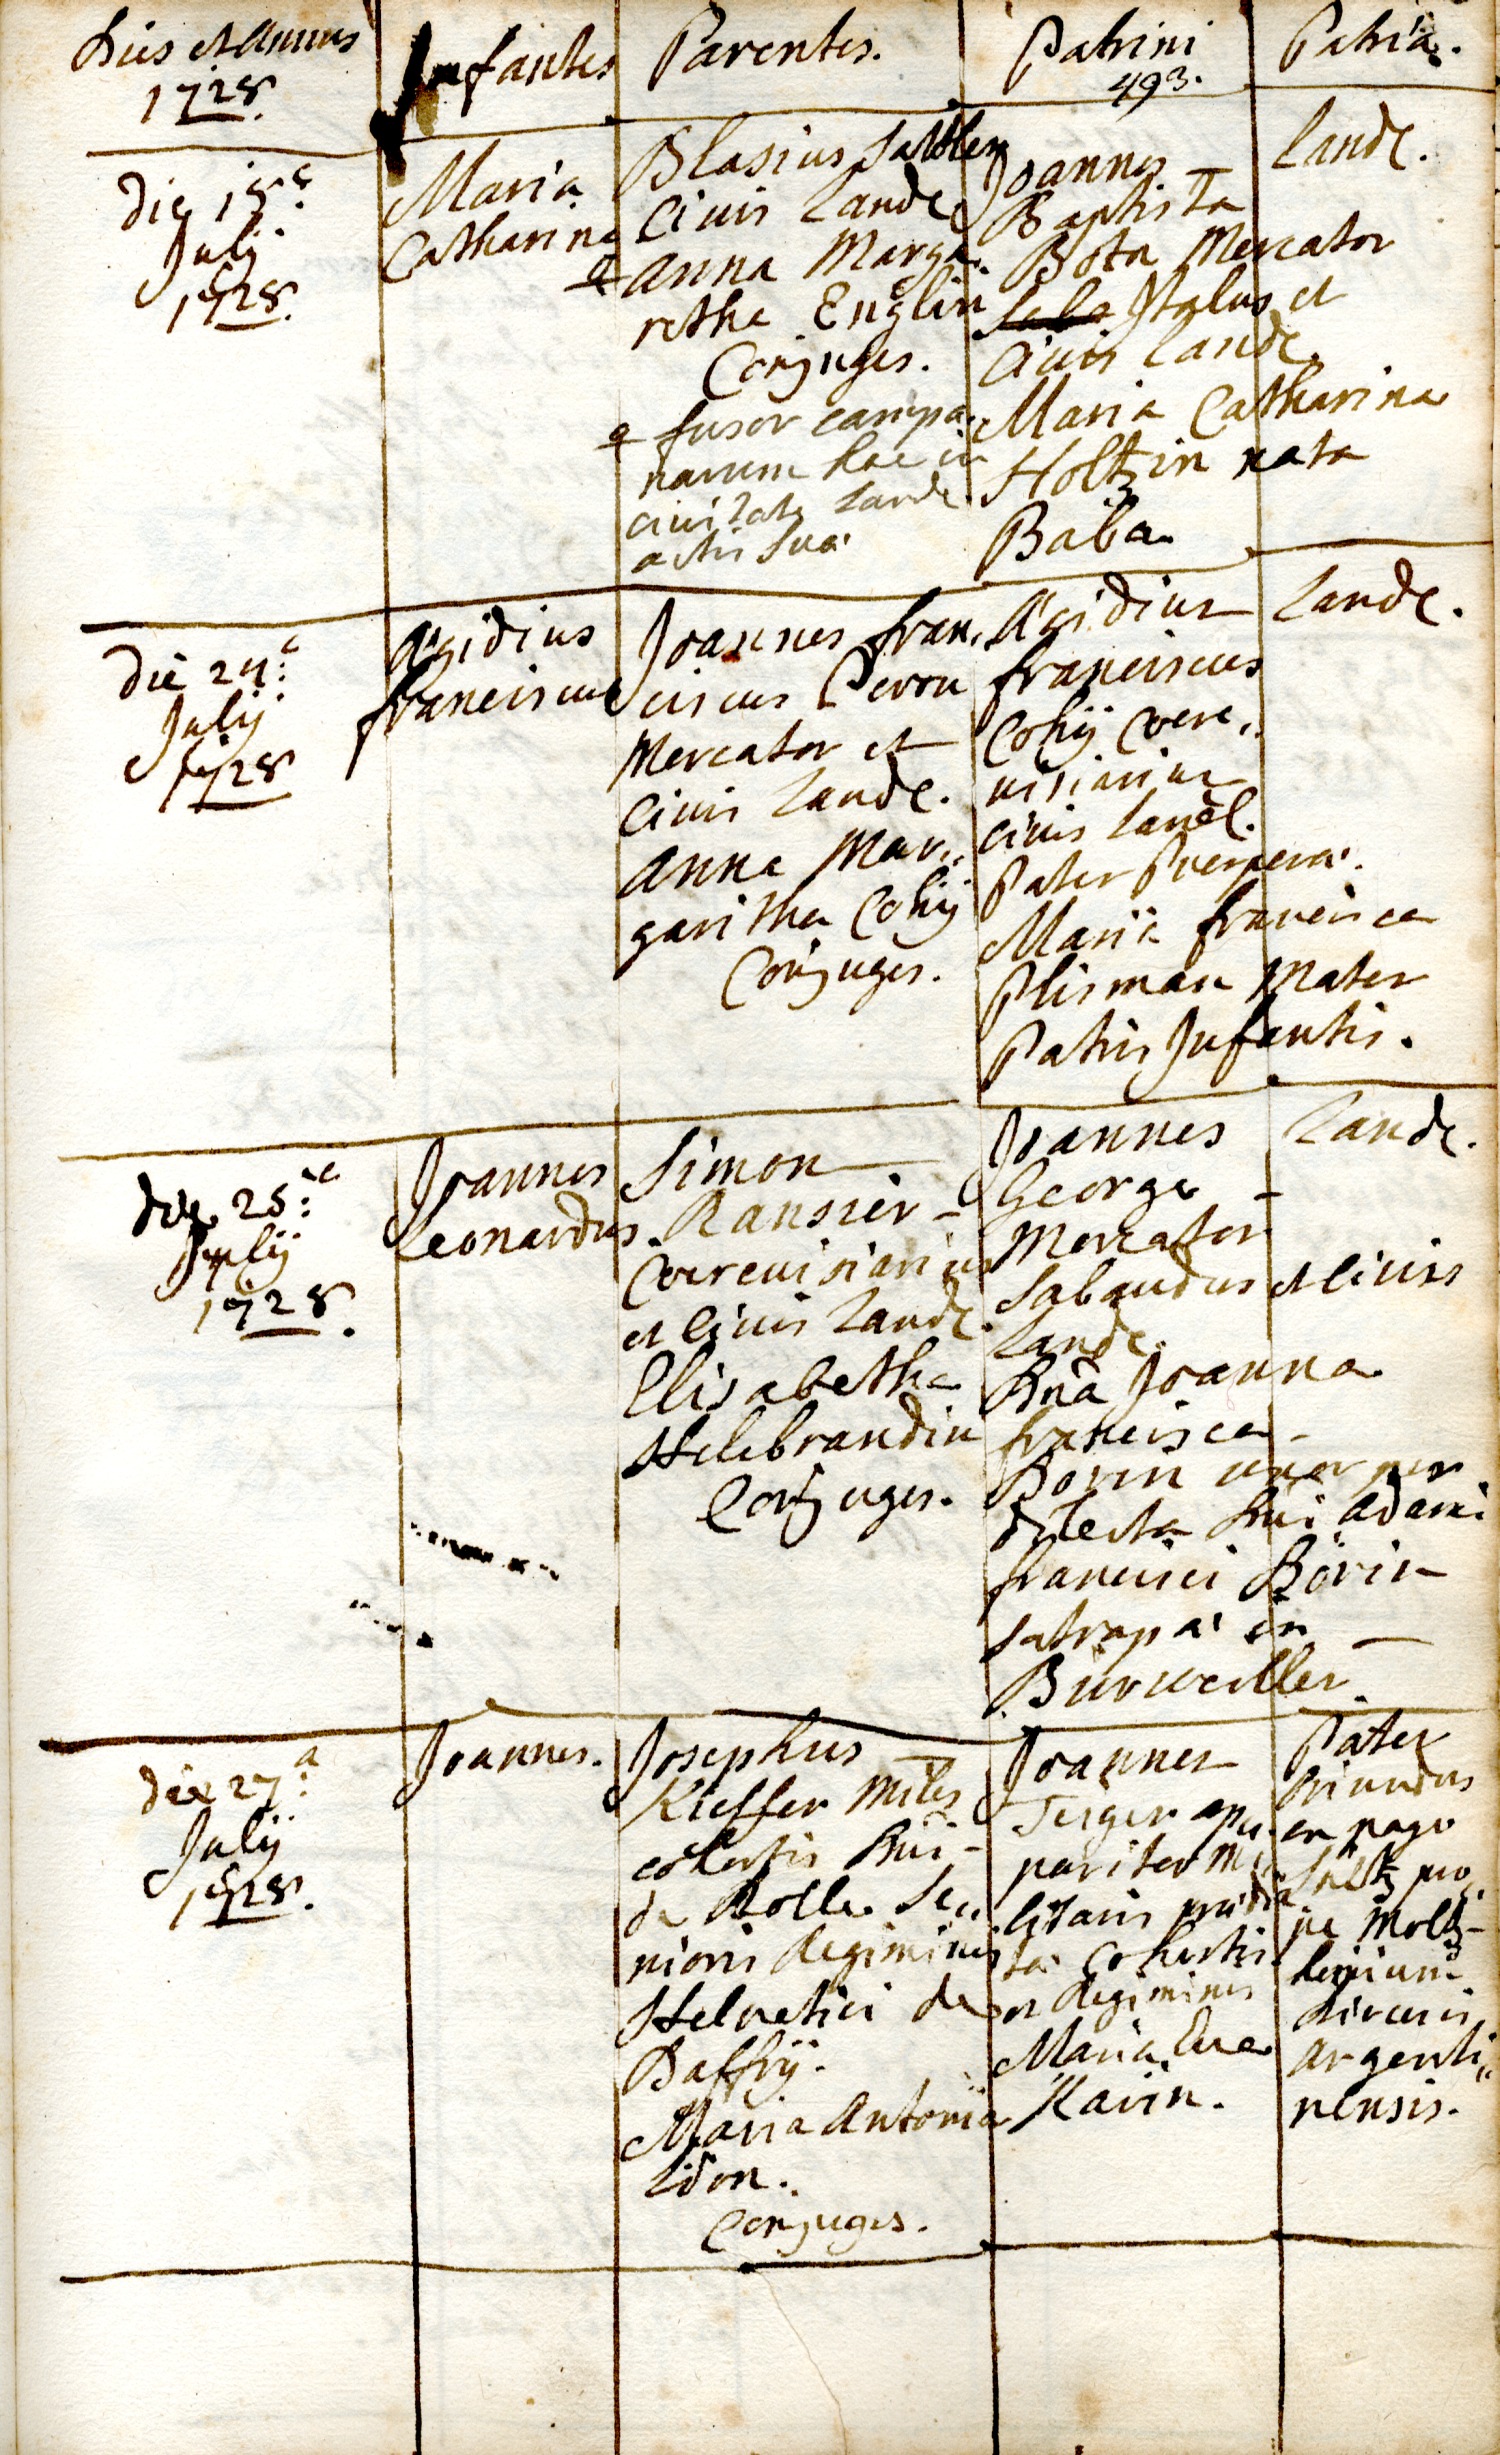 Dies et Annus
1728.
Infantes
Parentes.
Patrini
493.
Patria.
die 18a
July
1728.
Maria
Catharina
Blasius Sattler
Civis Landc.
Anna Marga„
retha Englin
Conjuges.
fusor campa„
narum hac in
civitate Landc.
artis suæ
Joannes
Baptista
Bota Mercator
Italus et
Civis Landc.
Maria Catharina
Holtzin nata
Baba.
Landc.
die 24:a
July
1728
Ægidius
franciscus
Joannes fran„
ciscus Peron
Mercator et
Civis Landc.
Anna Mar„
garitha Cohij
Conjuges.
Ægidius
franciscus
Cohij Cere„
visiarius
Civis Landc.
Pater Puerperæ.
Maria francisca
Plisman Mater
Patris Infantis.
Landc.
die 25:a
Julij
1728.
Joannes
Leonardus.
Simon
Ransier
Cerevisiarius
et Civis Landc.
Elisabetha
Hilebrandin
Conjuges.
Joannes
George
Mercator
Sabaudus et Civis
Landc.
Dna Joanna
francisca
Borin uxor per
dilecta Dni Adami
francisci Börin
satrapæ in
Burweiller
Landc.
die 27:a
Julij
1728.
Joannes.
Josephus
Kieffer Miles
cohortis Dni
de Rolle Se„
nioris Regiminis
Helvetici de
Baffry.
Maria Antonia
Lidon.
Conjuges.
Joannes
pariter Mi„
litaris prædic
tæ Cohortis
et Regiminis
Maria Eva
Karin.
Pater
oriundus
ex pago
Sultz pro„
pe Moltz-
heimium
Argenti„
nensis.